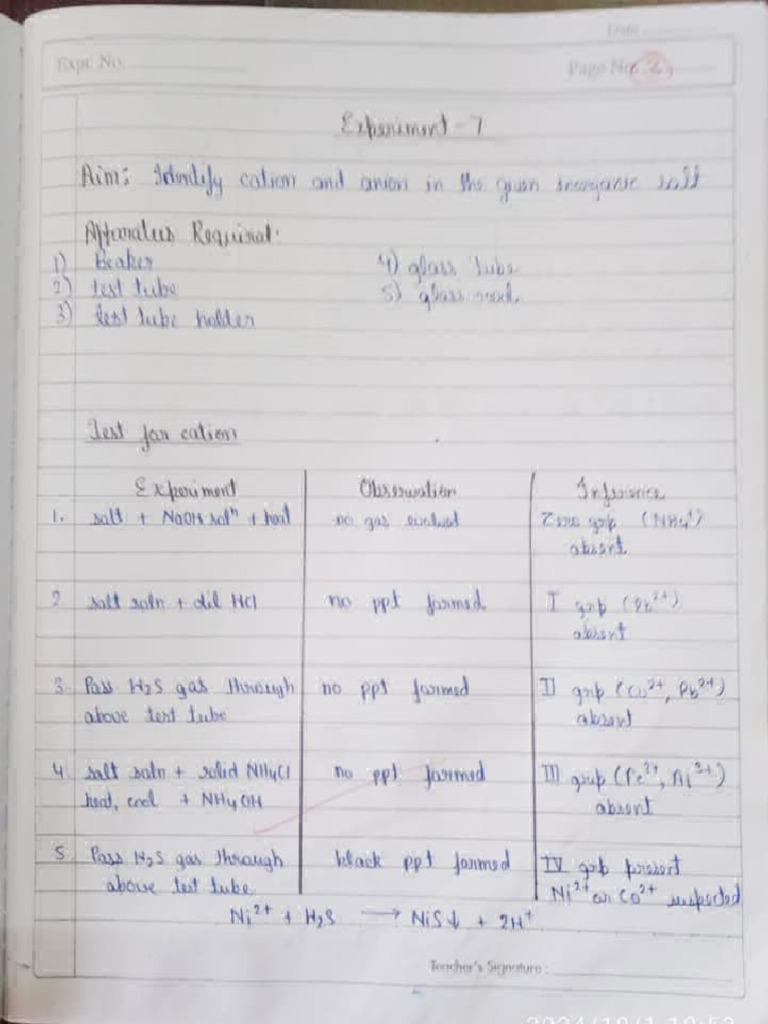 Date
Expt. No.
Page No. 2
Experiment - 7
Aim: Identify cation and anion in the given inorganic salt
Apparatus Required:
1) Beaker 4) glass tube
2) test tube 5) glass rod.
3) test tube holder
Test for cation
Experiment Observation Inference
1. salt + NaOH solⁿ + heat no gas evolved Zero grp (NH₄⁺)
absent
2. salt soln + dil HCl no ppt formed I grp (Pb²⁺)
absent
3. Pass H₂S gas through no ppt formed II grp (Cu²⁺, Pb²⁺)
above test tube absent
4. salt soln + solid NH₄Cl no ppt formed III grp (Fe³⁺, Al³⁺)
heat, cool + NH₄OH absent
5. Pass H₂S gas through black ppt formed IV grp present
above test tube Ni²⁺ or Co²⁺ suspected
Ni²⁺ + H₂S → NiS↓ + 2H⁺
Teacher's Signature :